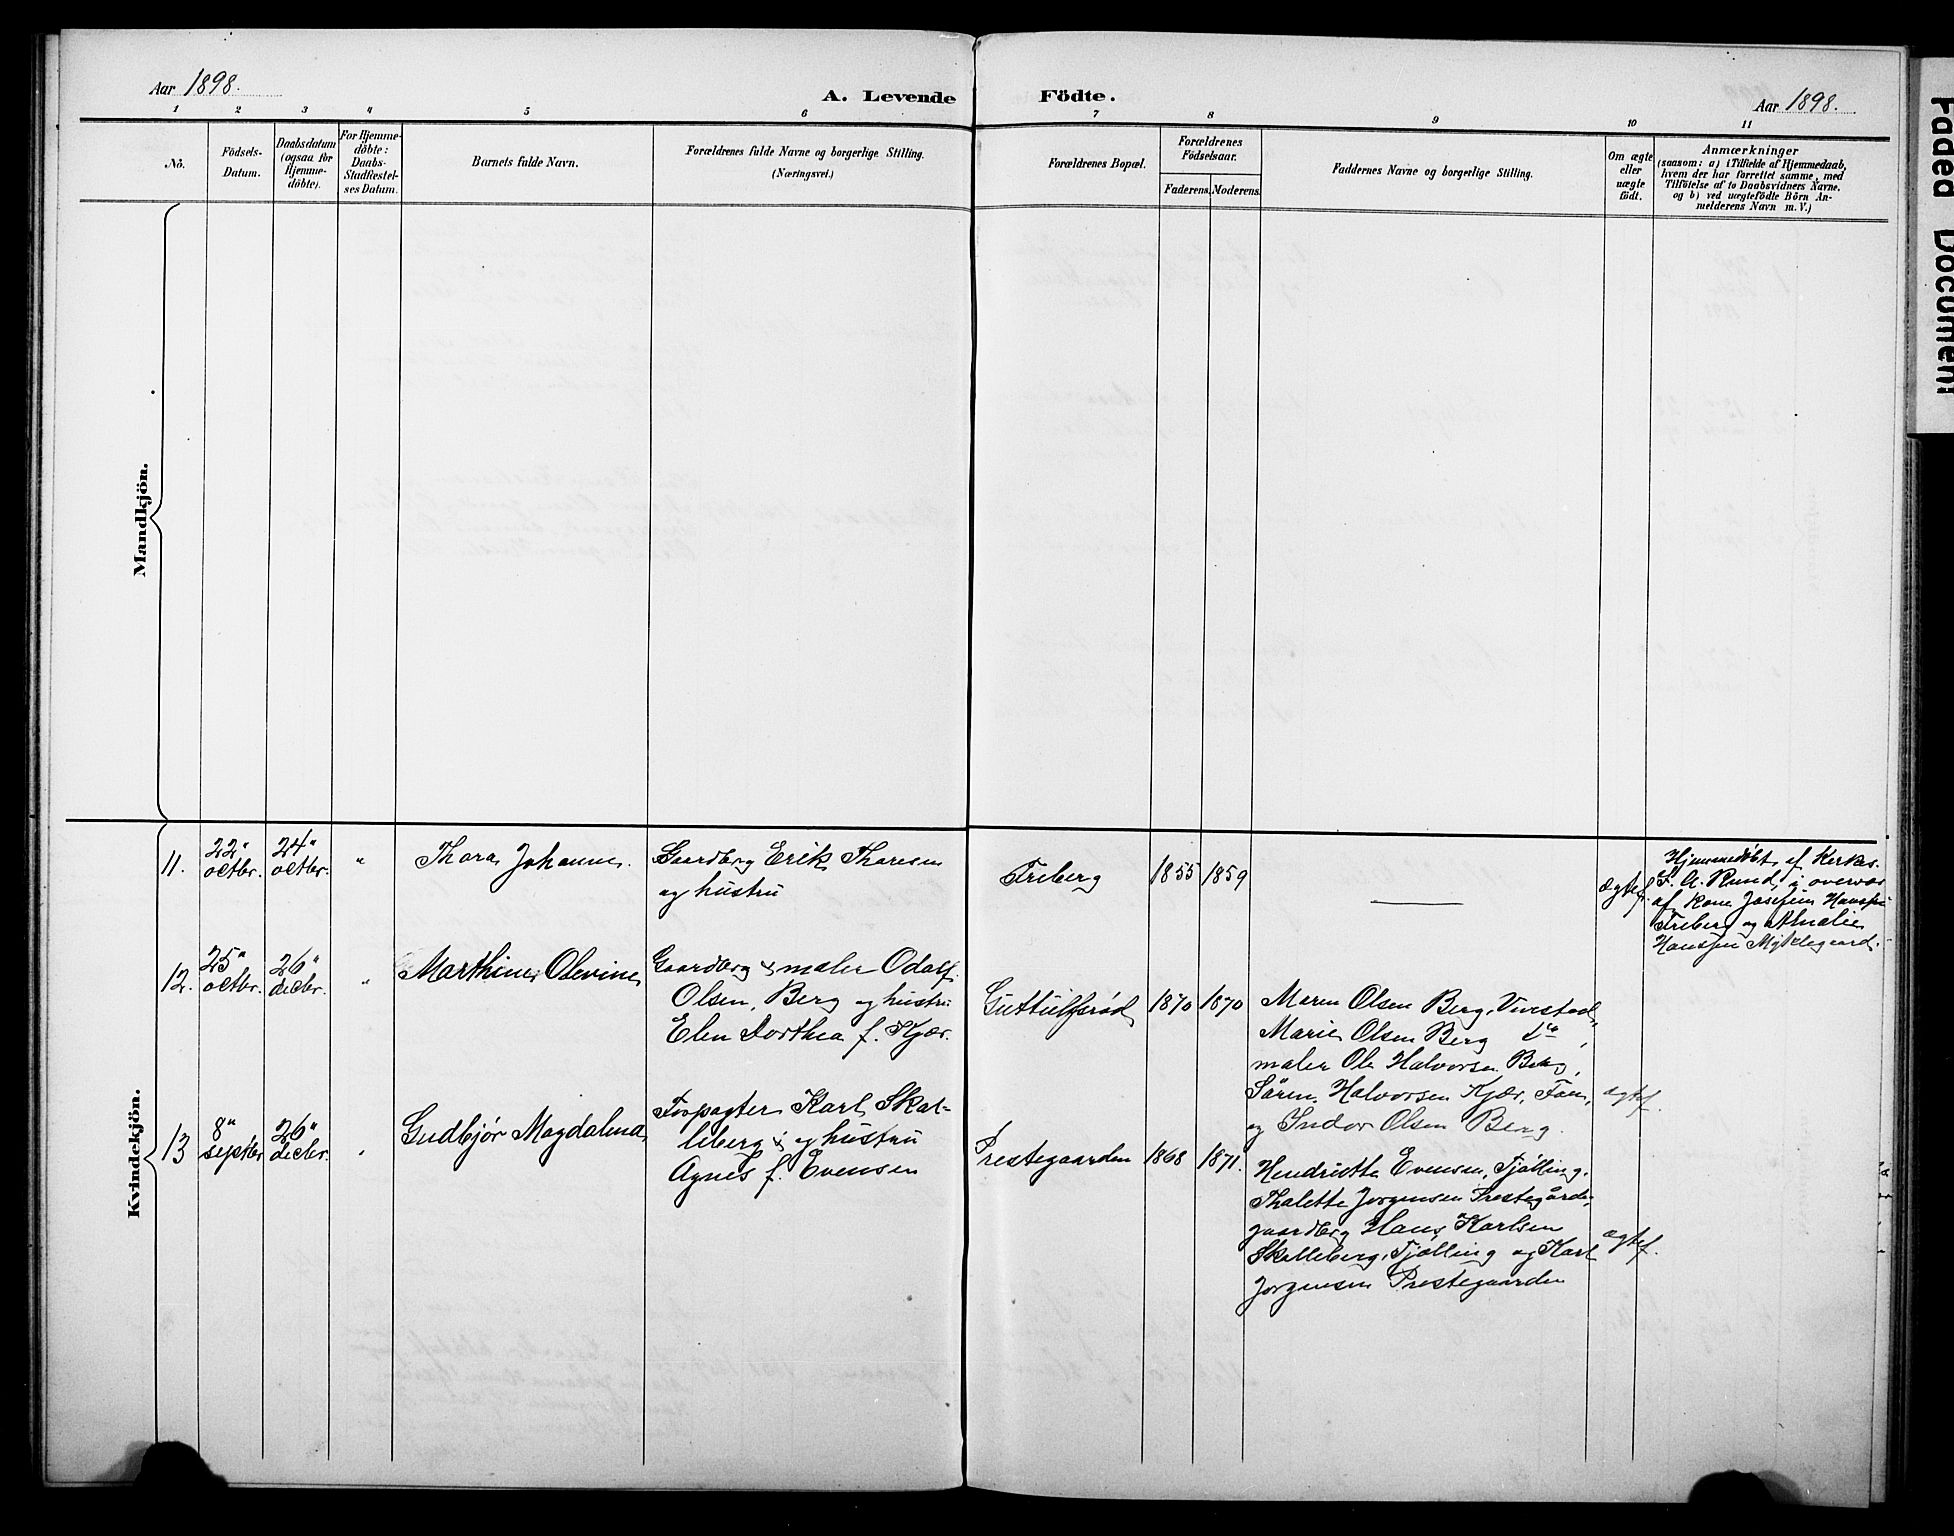 Aar 1898.
A. Levende Födte.
Aar 1898.
1 2 3 4 5 6 7 8 9 10 11
No.
Födsels-
Datum.
Daabsdatum
(ogsaa for
Hjemme-
döbte).
For Hjemme-
döbte:
Daabs-
Stadfæstel-
ses Datum.
Barnets fulde Navn.
Forældrenes fulde Navne og borgerlige Stilling.
(Næringsvei.)
Forældrenes Bopæl.
Forældrenes
Födselsaar.
Faderens. Moderens.
Faddernes Navne og borgerlige Stilling.
Om ægte
eller
uægte
födt.
Anmærkninger
(saasom: a) i Tilfælde af Hjemmedaab,
hvem der har forrettet samme, med
Tilföielse af to Daabsvidners Navne.
og b) ved uægtefödte Börn An-
melderens Navn m. V.)
Mandkjön.
Kvindekjön.
11.
22"
octbr.
24"
octbr.
"
Thora Johanne.
Gaardbrg Erik Thoresen
og hustru
Freberg
1855 1859
—
Ægtef.
Hjemmedøbt af Kirkes.
F. A. Rund, i overvær
af Kone Josefine Hanssen
Freberg og Amalie
Hanssen Myklegaard.
12.
25"
octbr.
26"
decbr.
"
Marthine Olevine
Gaardbrg & maler Odolf
Olsen, Berg og hustru
Elen Dorthea f. Kjær.
Guttulfsrød
1870 1870
Maren Olsen Berg,
Marie Olsen Berg do,
maler Ole Halvorsen Berg,
Sören Halvorsen Kjær,
og Indor Olsen Berg.
ægtef.
13
8"
septbr
26"
decbr.
"
Gudbjør Magdalena
Forpagter Karl Skal-
leberg & og hustru
Agnes f. Evensen
Prestegaarden
1868 1871.
Hendriette Evensen, Tjölling,
Thalette Jørgensen Prestegården,
gaardbrg Hans Karlsen
Skalleberg, Tjølling og Karl
Jørgensen Prestegaarden
ægtef.
Faded Document